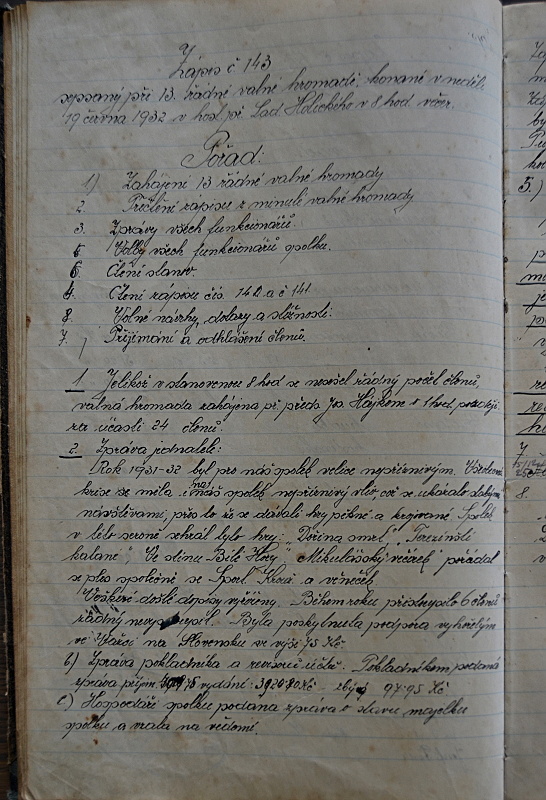 Zápis č 143
sepsaný při 13. řádné valné hromadě, konané v neděli
19 června 1932 v host. př. Lad. Holického v 8 hod. večer.
Pořad:
1) Zahájení 13 řádné valné hromady
2 Přečtění zápisu z minulé valné hromady
3. Zprávy všech funkcionářů.
5 Volby všech funkcionářů spolku.
6. Čtení stanov.
4. Čtení zápisu čís. 142 a č 141.
8. Volné návrhy, dotazy a stížnosti.
7. Přijímání a odhlášení členů.
1 Jelikož v stanovenou 8 hod se nesešel řádný počet členů,
valná hromada zahájena př. předs. Jos. Hájkem o 1 hod. později
za účasti 24 členů.
2. Zpráva jednatele:
Rok 1931-32 byl pro náš spolek velice nepříznivým.
krise se měla i na náš spolek nepříznivý vliv, což se ukázalo slabými
návštěvami, přes to že se dávali hry pěkné a krojované Spolek
v této seroně sehrál tyto hry: „Dořina smrt", Terezínští
katané", Ve stínu Bílé Hory" Mikulášský večírek pořádal
se ples společně se Sport. Kroužk. a věneček
Veškeré došlé dopisy vyřízeny. Během roku přistoupilo 6 členů
řádný nevystoupil. Byla poskytnuta podpora vyhořelým
ve Važci na Slovensku ve výši 75 Kč
b) Zpráva pokladníka a revisorů účtů. Pokladníkem podaná
zpráva příjm. vydání: 3920.80 Kč - zbývá 97.95 Kč
c) Hospodáři spolku podána zpráva o stavu majetku
spolku a vzata na vědomí.
5.)
7
8.